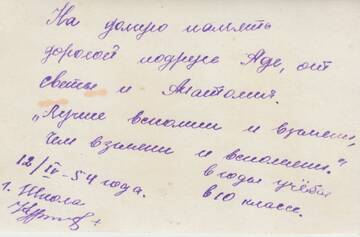 На долгую память
дорогой подруге Аде, от
Светы и Анатолия.
"Лучше вспомни и взгляни,
Чем взгляни и вспомни."
12/IV-54 года.
в годы учёбы
г. Школа
в 10 классе.